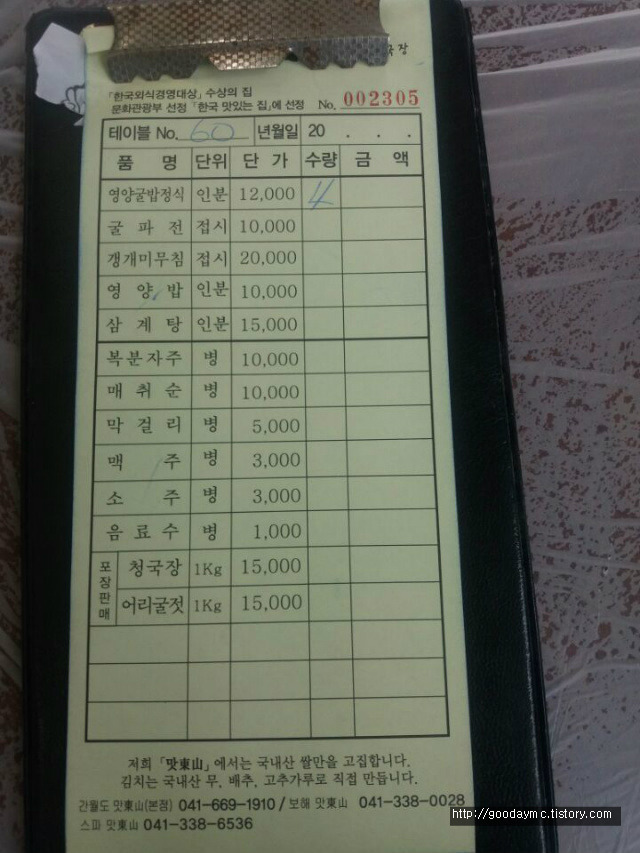 국장
「한국외식경영대상」 수상의 집
문화관광부 선정 「한국 맛있는 집」에 선정 No. 002305
테이블 No. 60 년월일 20 . . .
품 명 단위 단 가 수량 금 액
영양굴밥정식 인분 12,000 4
굴 파 전 접시 10,000
갱개미무침 접시 20,000
영 양 밥 인분 10,000
삼 계 탕 인분 15,000
복분자주 병 10,000
매 취 순 병 10,000
막 걸 리 병 5,000
맥 주 병 3,000
소 주 병 3,000
음 료 수 병 1,000
포장판매
청국장 1Kg 15,000
어리굴젓 1Kg 15,000
저희 「맛東山」에서는 국내산 쌀만을 고집합니다.
김치는 국내산 무. 배추. 고추가루로 직접 만듭니다.
간월도 맛東山(본점) 041-669-1910 / 보해 맛東山 041-338-0028
스파 맛東山 041-338-6536
http://goodaymc.tistory.com